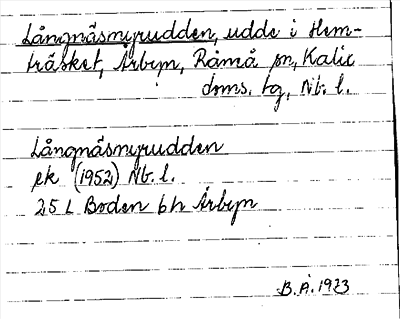 Långnäsmyrudden, udde i Hem-
träsket, Årbyn, Råneå sn, Kalix
doms. tg, Nb. l.
Långnäsmyrudden
ek (1952) Nb. l.
25 L Boden 6 h Årbyn
B.Å. 1973